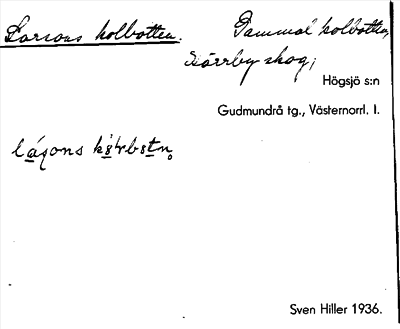 Larsons kolbotten. Gammal kolbotten,
Norrby skog;
Högsjö s:n
Gudmundrå tg., Västernorrl. l.
Sven Hiller 1936.